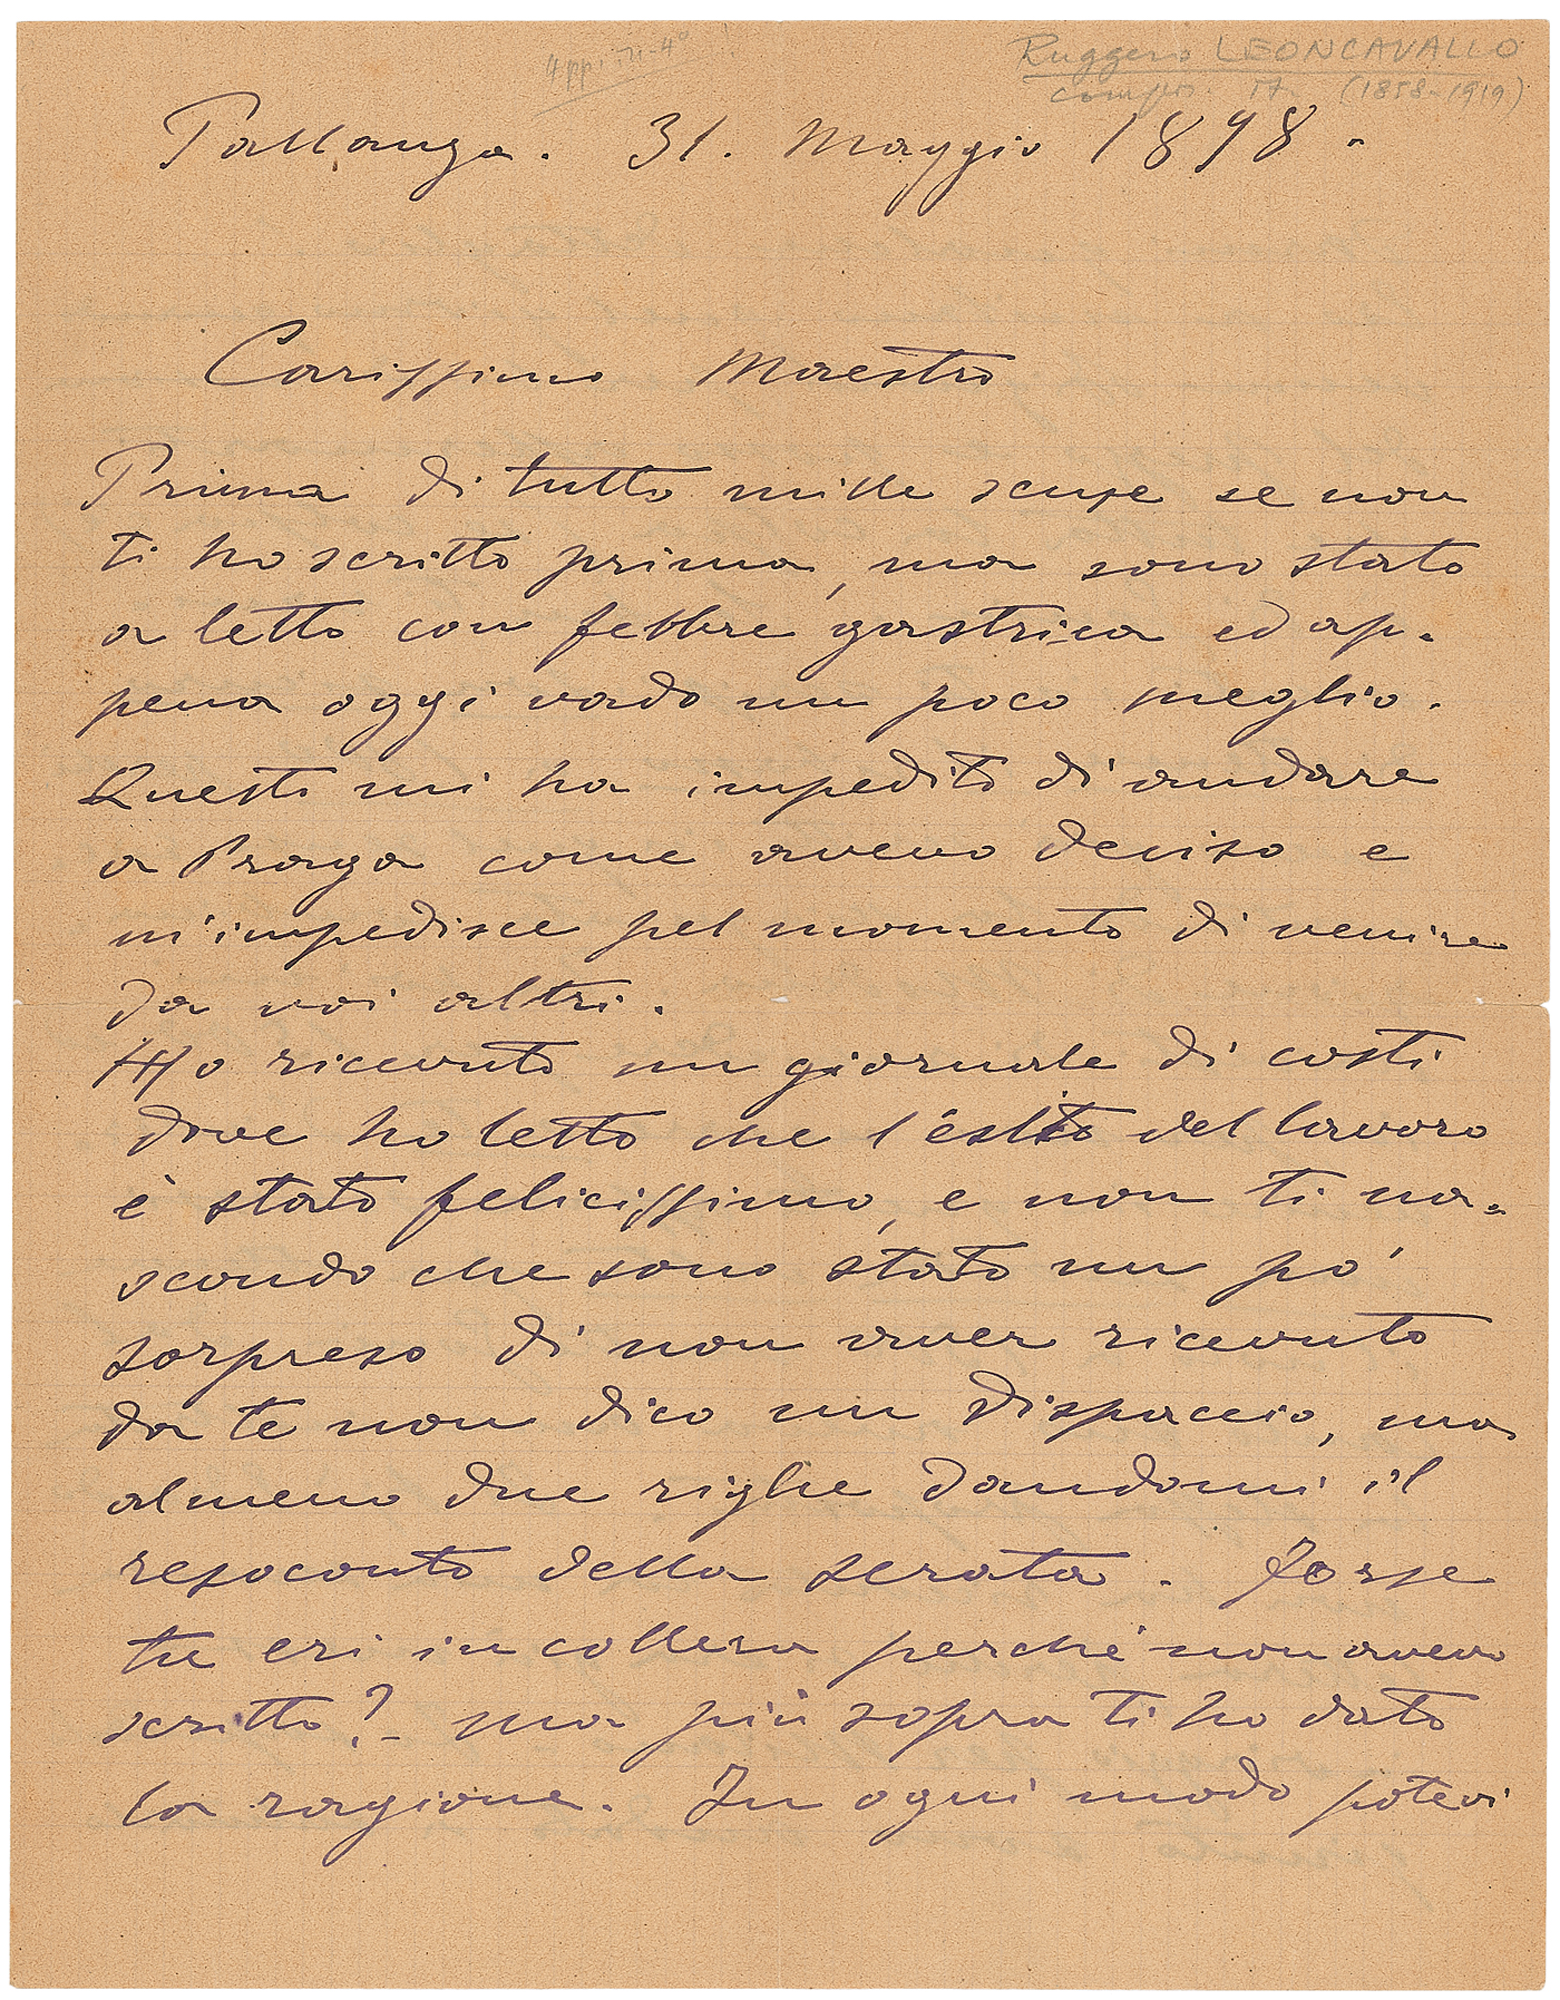 4pp. in-4°
Ruggero LEONCAVALLO
compos. it. (1858-1919)
Pallanza. 31. Maggio 1898.
Carissimo Maestro
Prima di tutto mille scuse se non
ti ho scritto prima, ma sono stato
a letto con febbre gastrica ed ap-
pena oggi vado un poco meglio.
Questo mi ha impedito di andare
a Praga come avevo deciso e
m'impedisce pel momento di venire
da voi altri.
Ho ricevuto un giornale di costì
dove ho letto che l'esito del lavoro
è stato felicissimo, e non ti na-
scondo che sono stato un po'
sorpreso di non aver ricevuto
da te non dico un dispaccio, ma
almeno due righe dandomi il
resoconto della serata. Forse
tu eri in collera perché non avevo
scritto?_ ma più sopra ti ho dato
la ragione. In ogni modo potevi